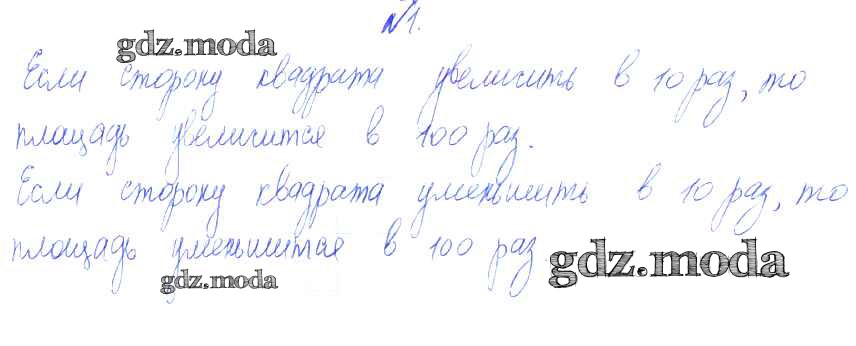 №1.
gdz.moda
Если сторону квадрата увеличить в 10 раз, то
площадь увеличится в 100 раз.
Если сторону квадрата уменьшить в 10 раз, то
площадь уменьшится в 100 раз
gdz.moda
gdz.moda